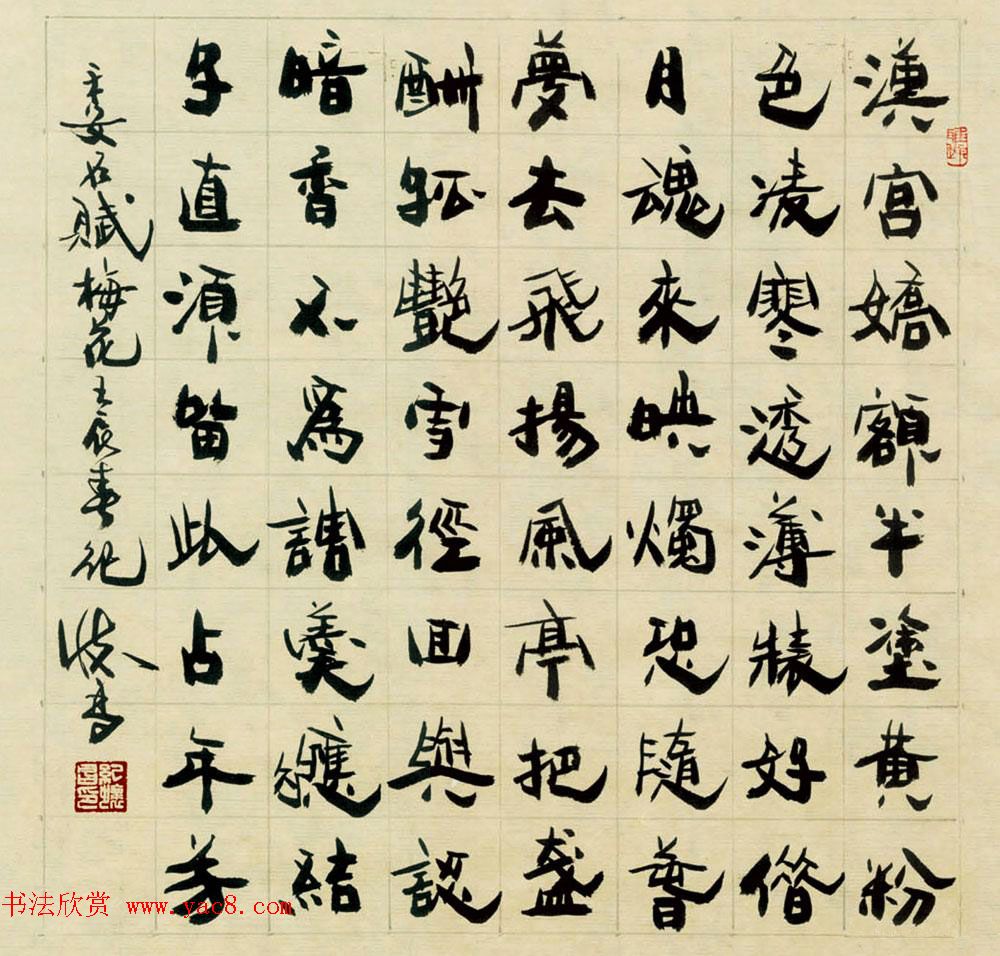 漢宮嬌額半塗黃粉
色凌寒透薄裝好借
月魂來映燭恐隨春
夢去飛揚風亭把盞
酬孤艷雪徑回與認
暗香不為調羹應結
子直須留此占年芳
王安石賦梅花壬辰春
书法欣赏 www.yac8.com